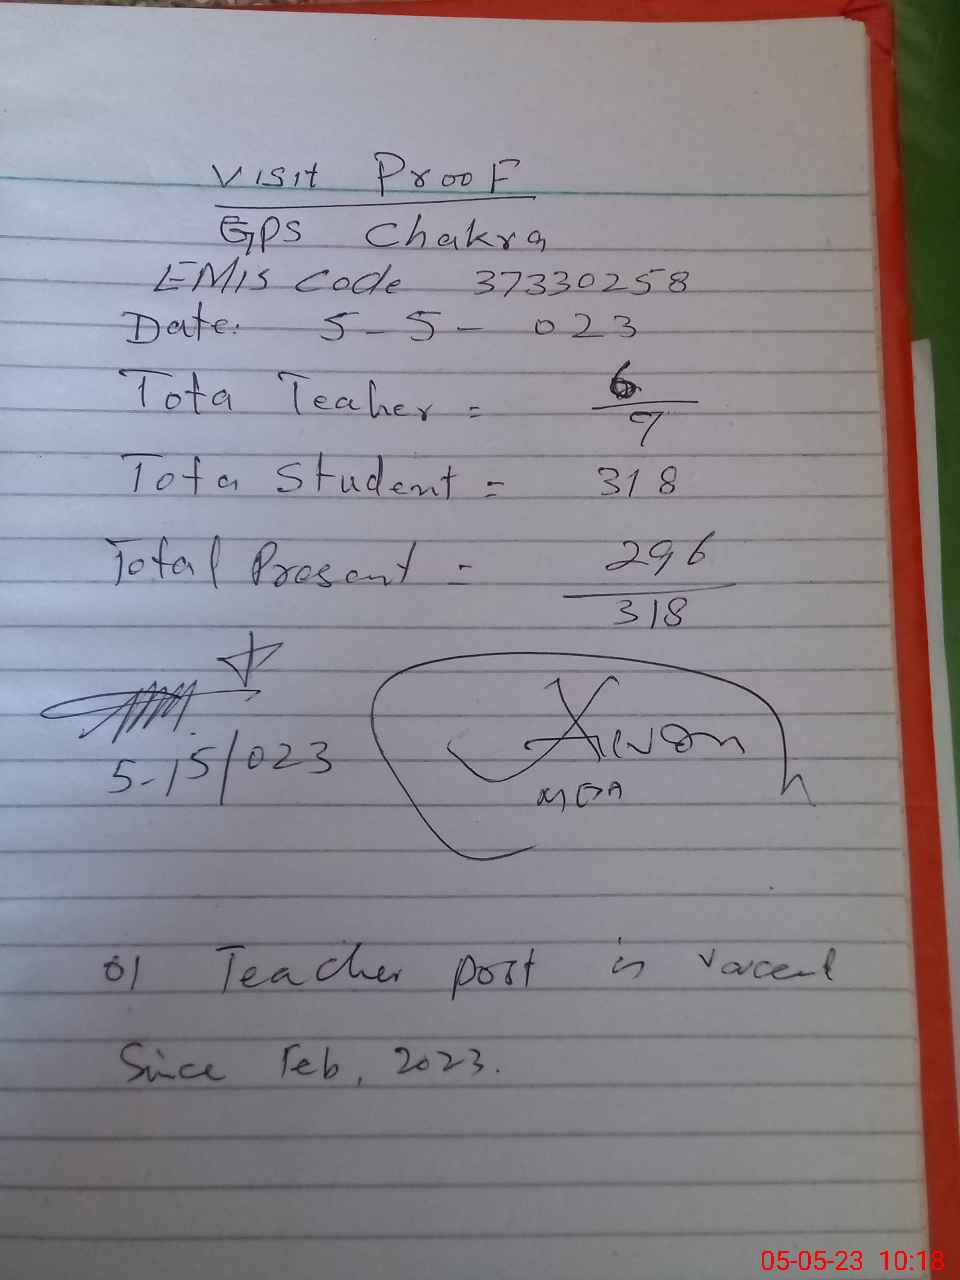 Visit Proof
GPS Chakra
EMIS Code 37330258
Date: 5-5-023
Tota Teaher = 6/7
Tota Student = 318
Total Present = 296/318
5-/5/023
MEA
01 Teacher post is vacent
Since Feb, 2023.
05-05-23 10:18